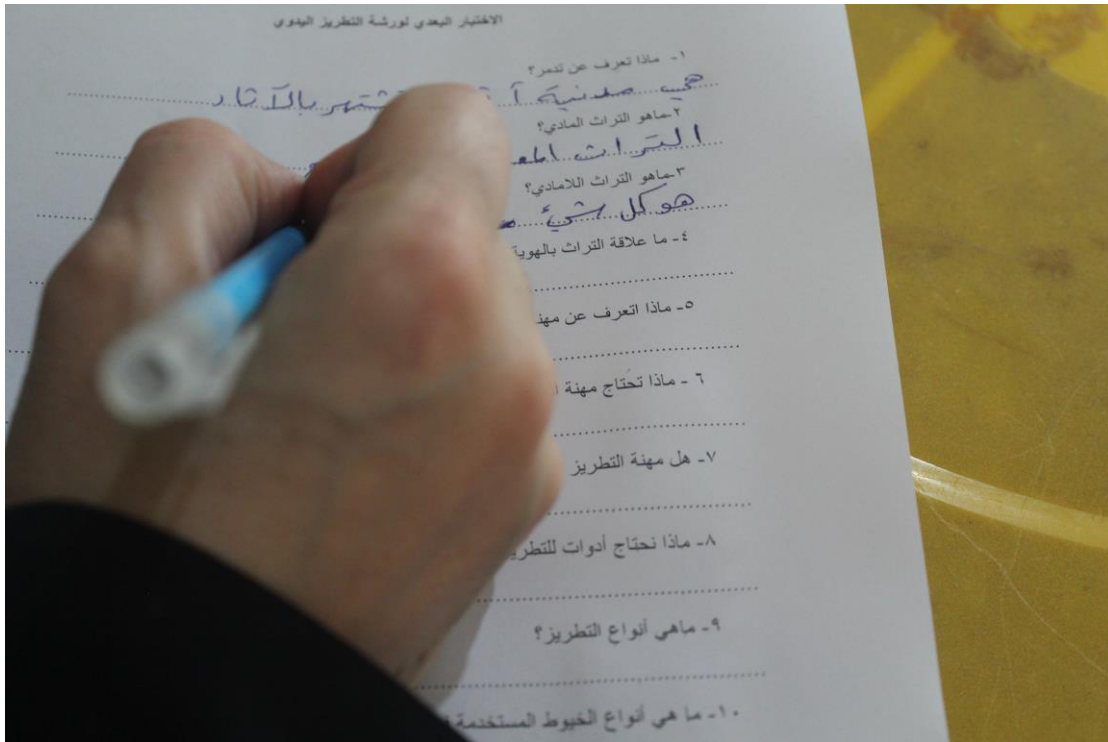 الاختبار البعدي لورشة التطريز اليدوي
١- ماذا تعرف عن تدمر؟
هي مدنية تشتهر بالآثار
٢-ماهو التراث المادي؟
التراث
٣-ماهو التراث اللامادي؟
هو كل شيء
٤- ما علاقة التراث بالهوية
٥- ماذا اتعرف عن
٦ - ماذا تحتاج مهنة
٧- هل مهنة التطريز
٨- ماذا نحتاج أدوات
٩- ماهي أنواع التطريز؟
١٠- ما هي أنواع الخيوط المستخدمة